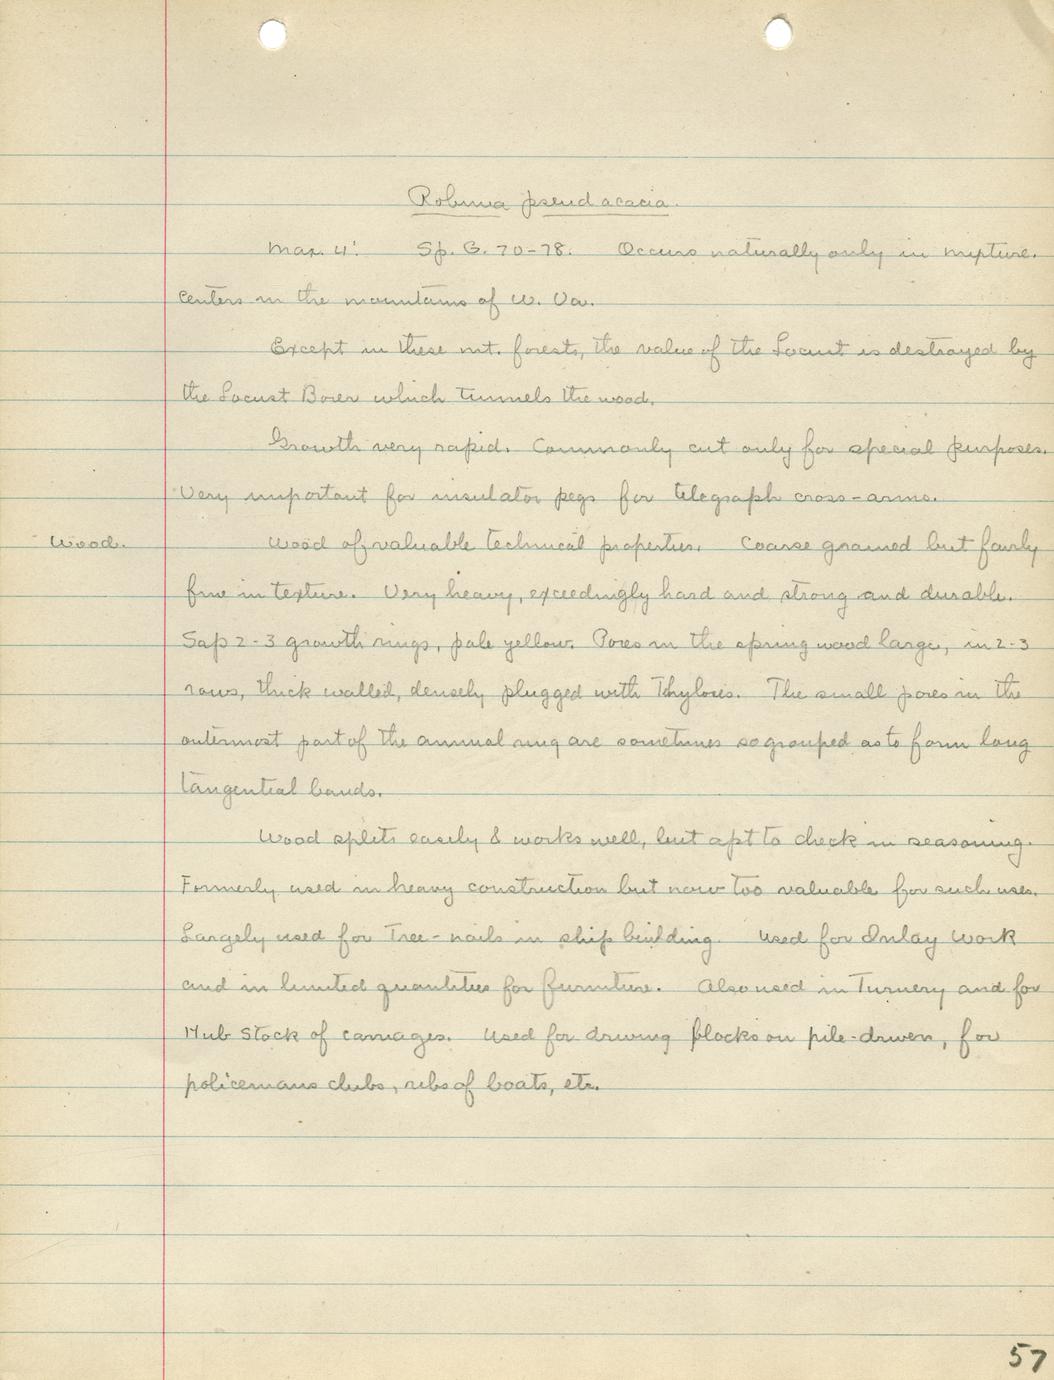 Robinia pseudacacia.
Max. 4'. Sp. G. 70-78. Occurs naturally only in mixture.
Centers in the mountains of W. Va.
Except in these mt. forests, the value of the Locust is destroyed by
the Locust Borer which tunnels the wood.
Growth very rapid. Commonly cut only for special purposes.
Very important for insulator pegs for telegraph cross-arms.
Wood. Wood of valuable technical properties. Coarse grained but fairly
fine in texture. Very heavy, exceedingly hard and strong and durable.
Sap 2-3 growth rings, pale yellow. Pores in the spring wood large, in 2-3
rows, thick walled, densely plugged with Thyloses. The small pores in the
outermost part of the annual ring are sometimes so grouped as to form long
tangential bands.
Wood splits easily & works well, but apt to check in seasoning.
Formerly used in heavy construction but now too valuable for such uses.
Largely used for Tree-nails in ship building. Used for Inlay work
and in limited quantities for furniture. Also used in Turnery and for
Hub Stock of carriages. Used for driving blocks on pile-driver, for
policemans clubs, ribs of boats, etc.
57